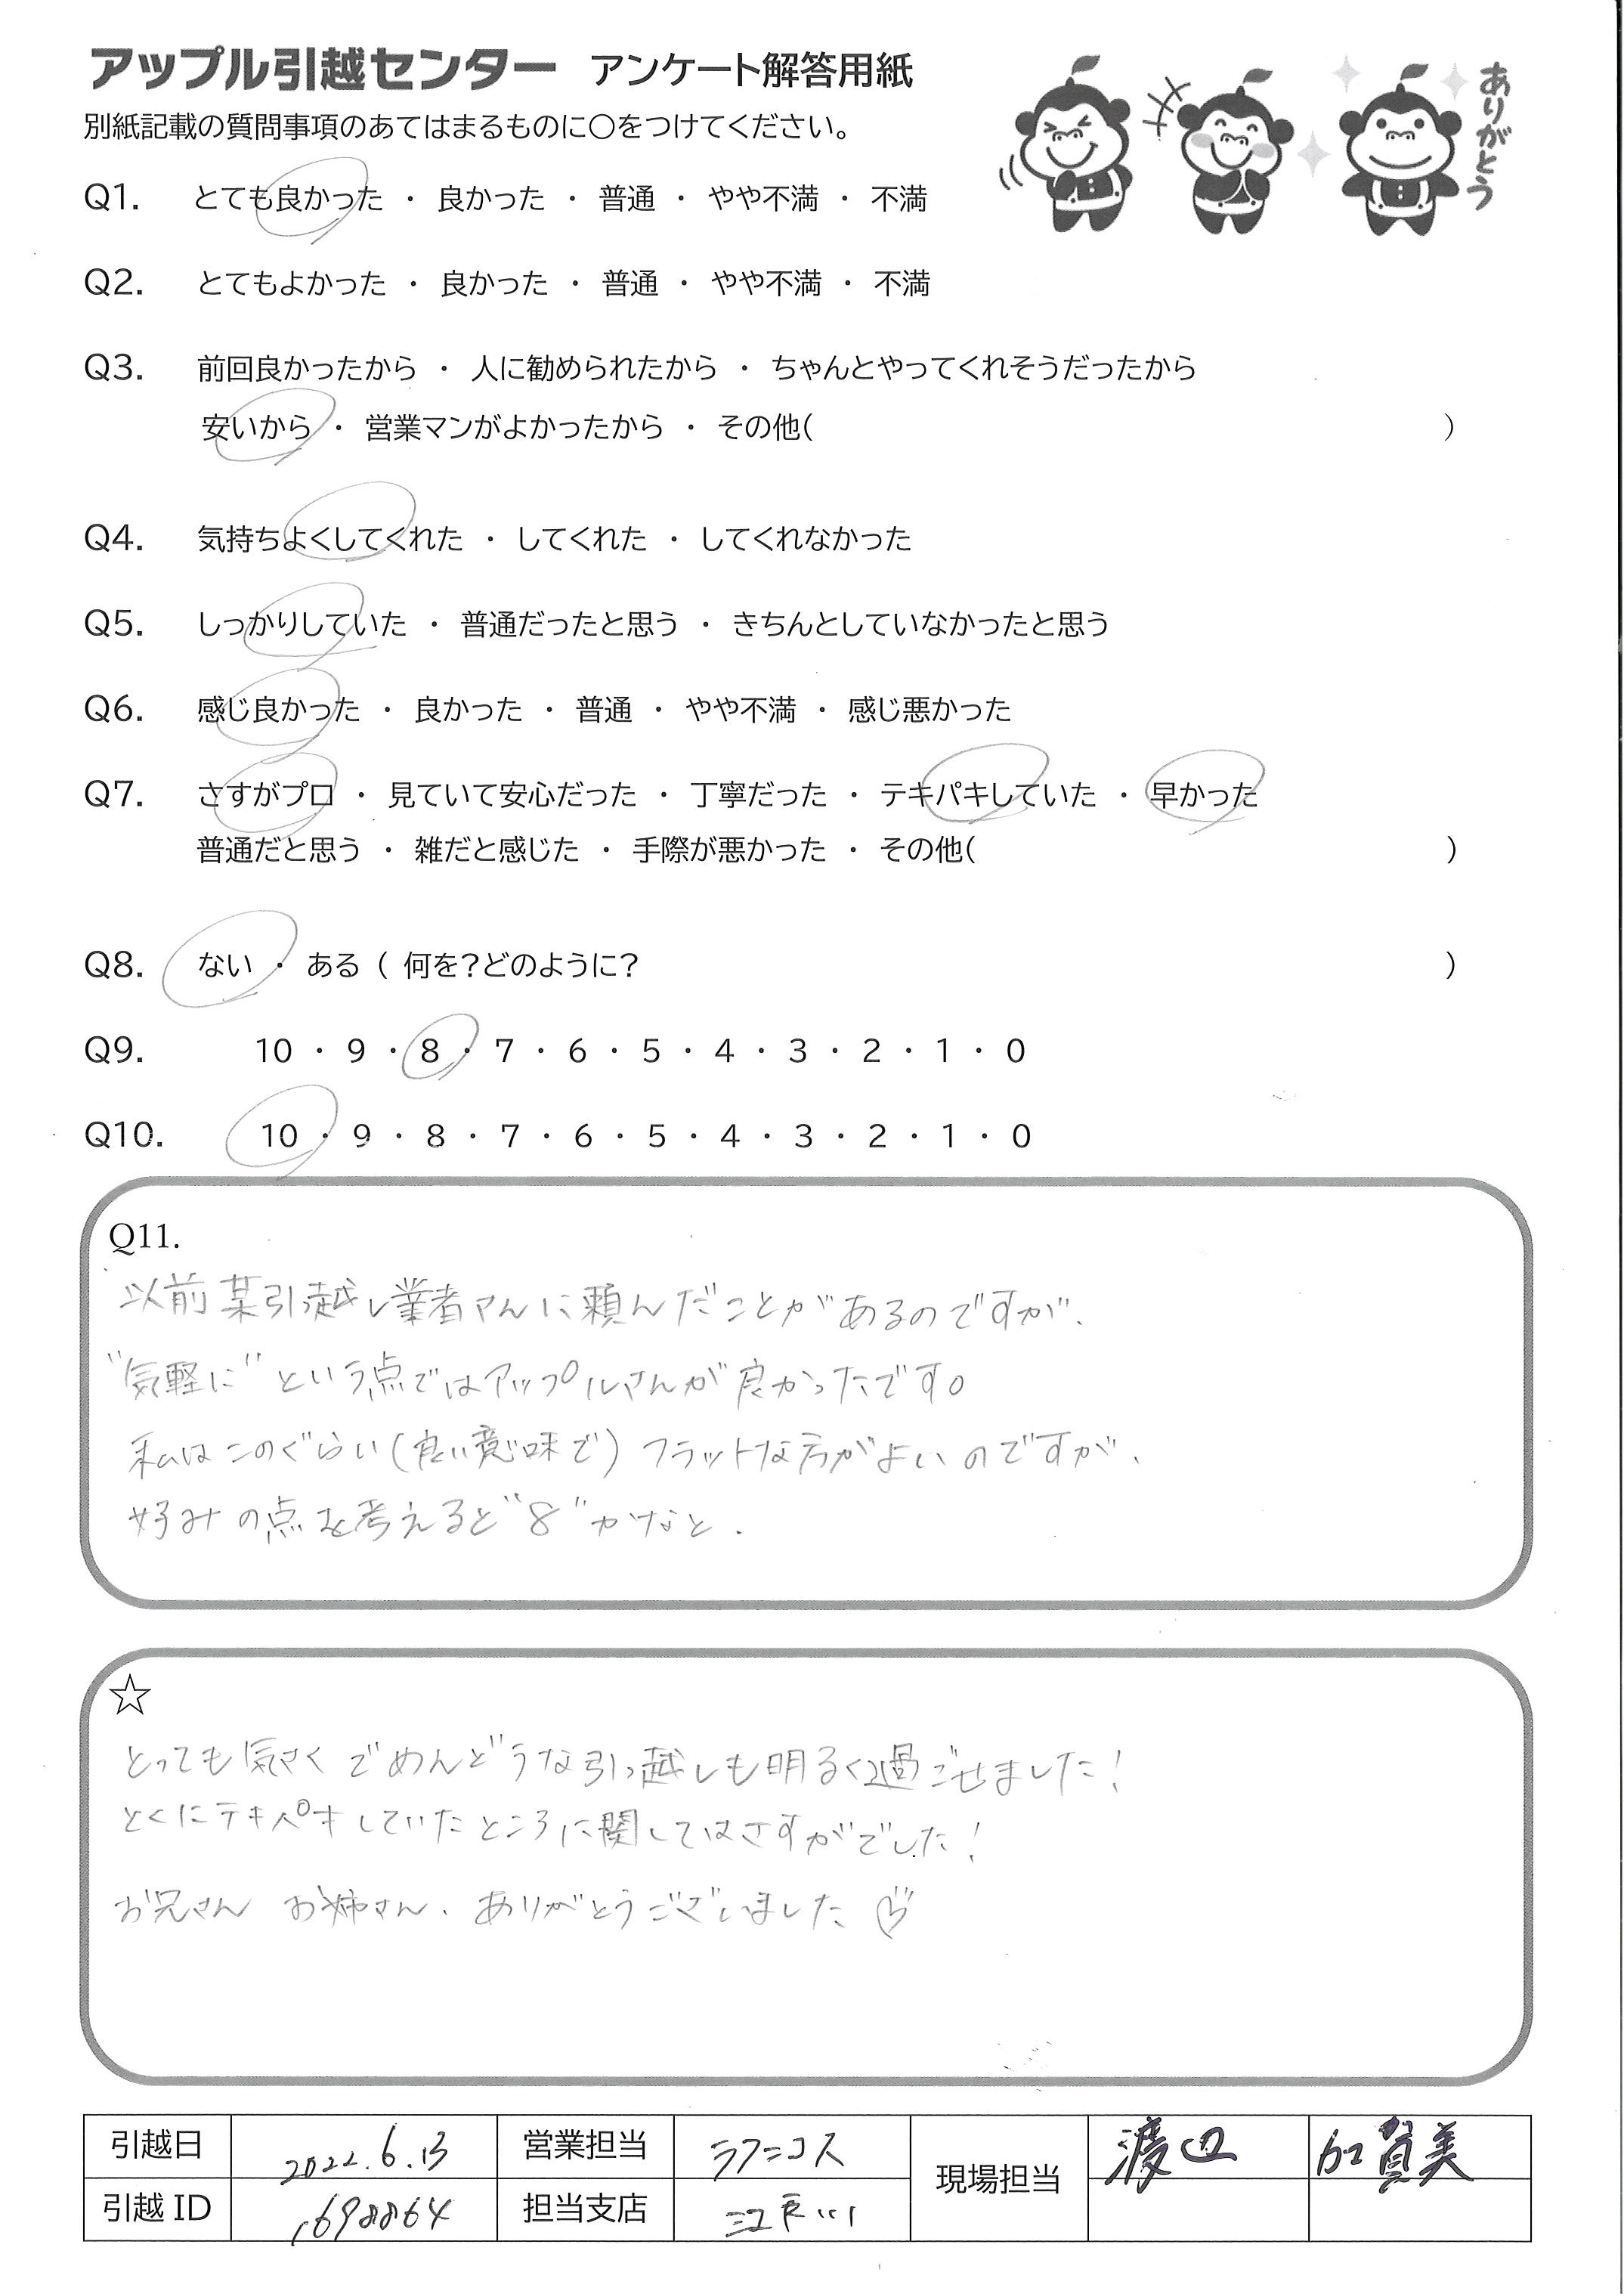 アップル引越センター アンケート解答用紙
別紙記載の質問事項のあてはまるものに○をつけてください。
ありがとう
Q1. とても良かった ・ 良かった ・ 普通 ・ やや不満 ・ 不満
Q2. とてもよかった ・ 良かった ・ 普通 ・ やや不満 ・ 不満
Q3. 前回良かったから ・ 人に勧められたから ・ ちゃんとやってくれそうだったから
安いから ・ 営業マンがよかったから ・ その他( )
Q4. 気持ちよくしてくれた ・ してくれた ・ してくれなかった
Q5. しっかりしていた ・ 普通だったと思う ・ きちんとしていなかったと思う
Q6. 感じ良かった ・ 良かった ・ 普通 ・ やや不満 ・ 感じ悪かった
Q7. さすがプロ ・ 見ていて安心だった ・ 丁寧だった ・ テキパキしていた ・ 早かった
普通だと思う ・ 雑だと感じた ・ 手際が悪かった ・ その他( )
Q8. ない ・ ある ( 何を?どのように? )
Q9. 10 ・ 9 ・ 8 ・ 7 ・ 6 ・ 5 ・ 4 ・ 3 ・ 2 ・ 1 ・ 0
Q10. 10 ・ 9 ・ 8 ・ 7 ・ 6 ・ 5 ・ 4 ・ 3 ・ 2 ・ 1 ・ 0
Q11.
以前某引っ越し業者さんに頼んだことがあるのですが、
"気軽に"という点ではアップルさんが良かったです。
私はこのぐらい(良い意味で)フラットな方がよいのですが、
好みの点を考えると"8"かなと.
☆
とっても気さくでめんどうな引っ越しも明るく過ごせました!
とくにテキパキしていたところに関してはさすがでした!
お兄さん お姉さん、ありがとうございました♡
引越日 2022.6.13 営業担当 ラフニコス 現場担当 渡辺 加賀美
引越ID 1698864 担当支店 江戸川